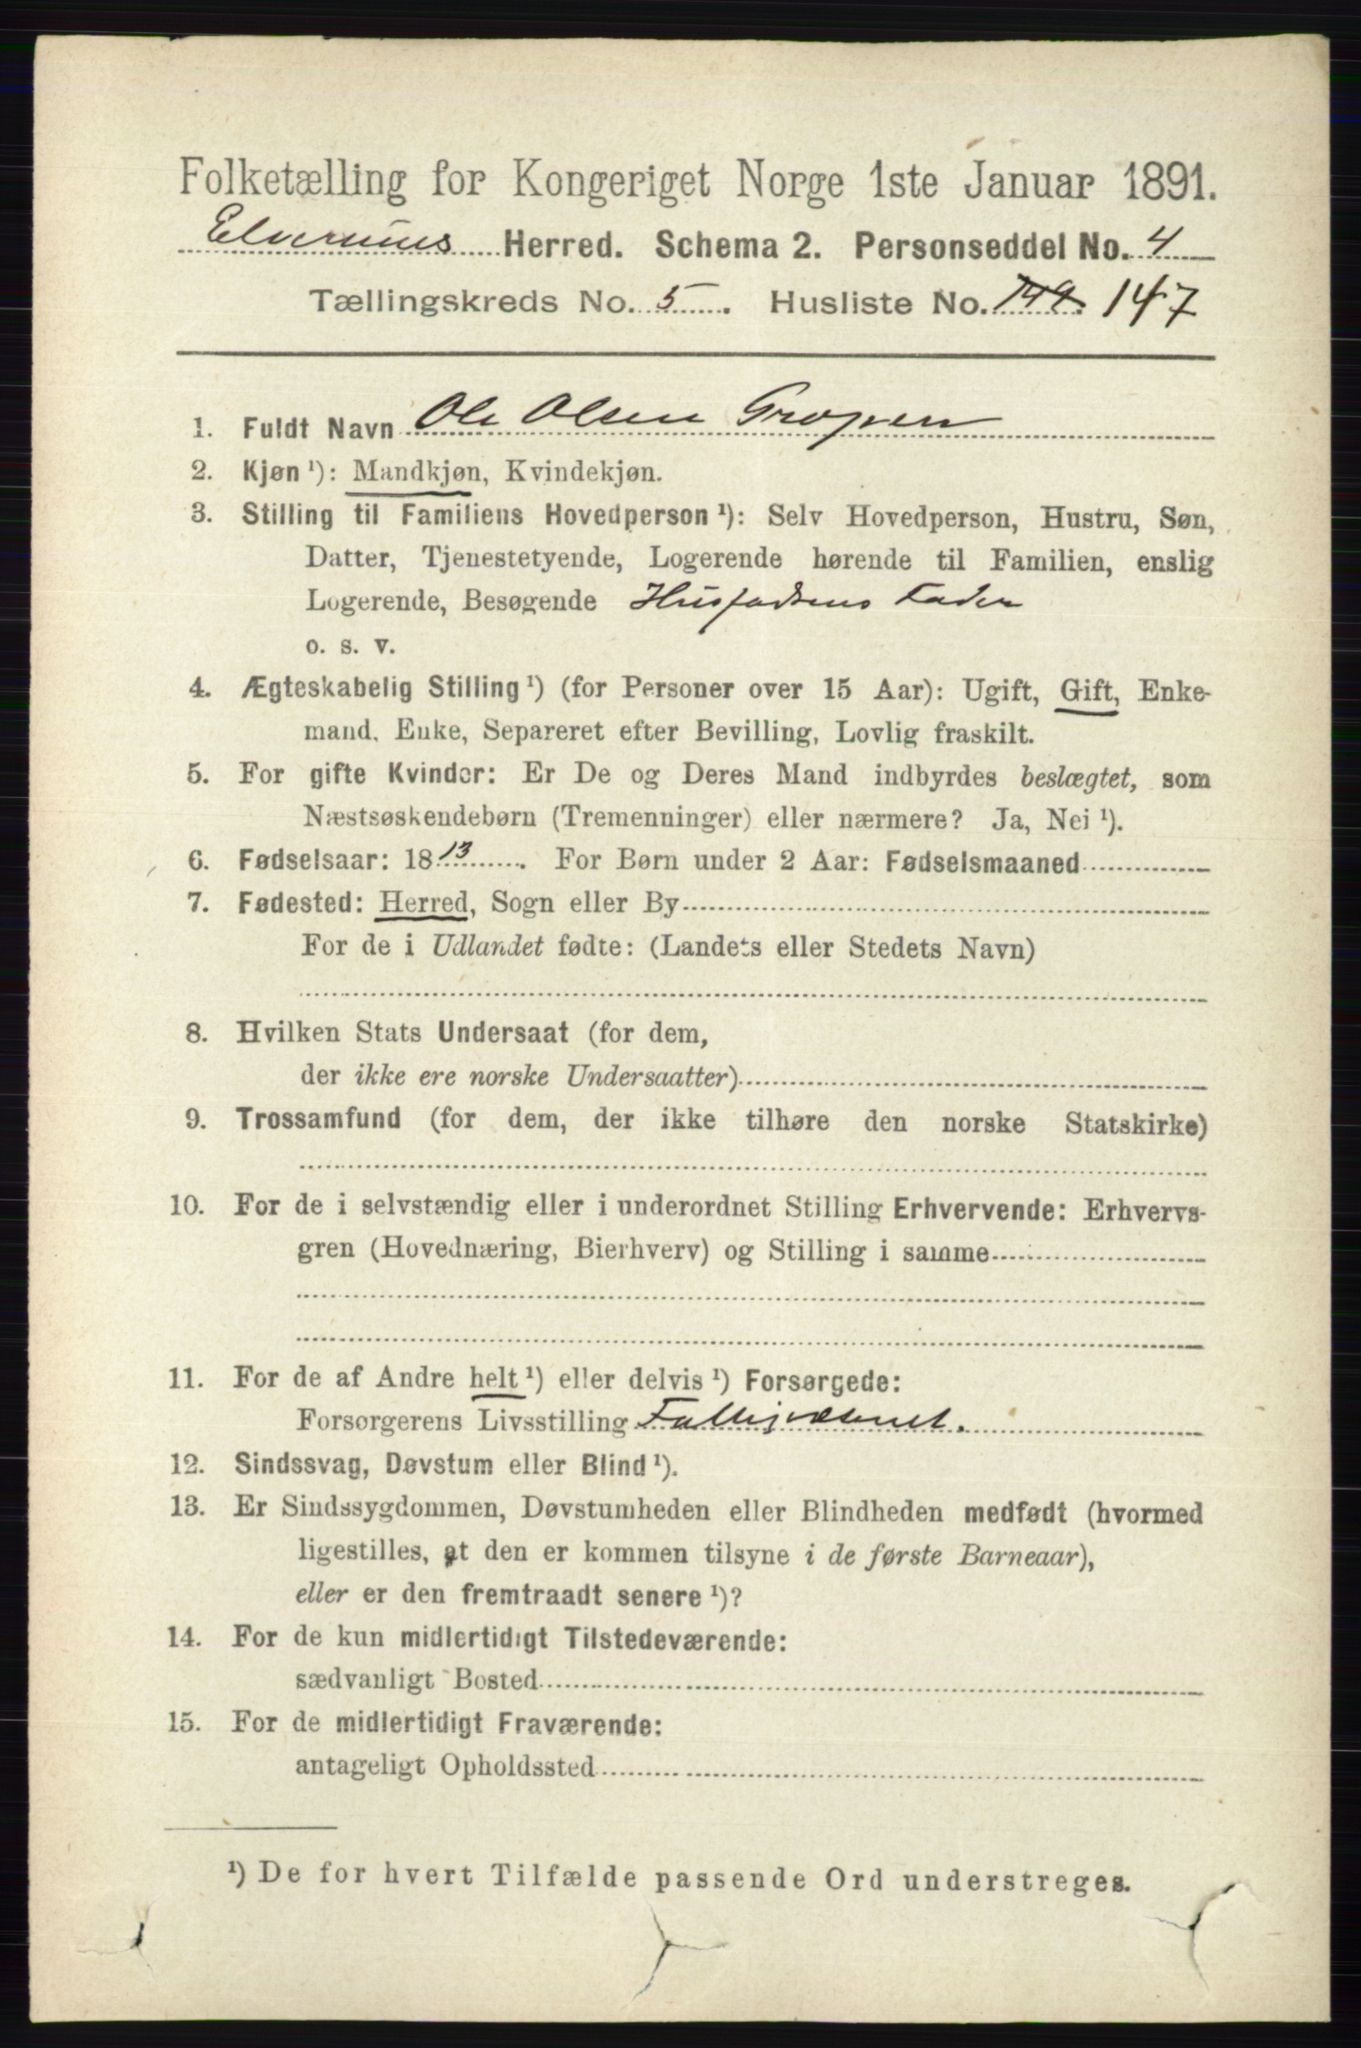 Folketælling for Kongeriget Norge 1ste Januar 1891.
Elverums Herred. Schema 2. Personseddel No. 4
Tællingskreds No. 5. Husliste No. 149. 147
1. Fuldt Navn Ole Olsen Gropen
2. Kjøn ¹): Mandkjøn, Kvindekjøn.
3. Stilling til Familiens Hovedperson ¹): Selv Hovedperson, Hustru, Søn,
Datter, Tjenestetyende, Logerende hørende til Familien, enslig
Logerende, Besøgende Husfaderens Fader
o. s. v.
4. Ægteskabelig Stilling ¹) (for Personer over 15 Aar): Ugift, Gift, Enke-
mand, Enke, Separeret efter Bevilling, Lovlig fraskilt.
5. For gifte Kvinder: Er De og Deres Mand indbyrdes beslægtet, som
Næstsøskendebørn (Tremenninger) eller nærmere? Ja, Nei ¹).
6. Fødselsaar: 1813. For Børn under 2 Aar: Fødselsmaaned
7. Fødested: Herred, Sogn eller By
For de i Udlandet fødte: (Landets eller Stedets Navn)
8. Hvilken Stats Undersaat (for dem,
der ikke ere norske Undersaatter)
9. Trossamfund (for dem, der ikke tilhøre den norske Statskirke)
10. For de i selvstændig eller i underordnet Stilling Erhvervende: Erhvervs-
gren (Hovednæring, Bierhverv) og Stilling i samme
11. For de af Andre helt ¹) eller delvis ¹) Forsørgede:
Forsørgerens Livsstilling Fattigvæsenet.
12. Sindssvag, Døvstum eller Blind ¹).
13. Er Sindssygdommen, Døvstumheden eller Blindheden medfødt (hvormed
ligestilles, at den er kommen tilsyne i de første Barneaar),
eller er den fremtraadt senere ¹)?
14. For de kun midlertidigt Tilstedeværende:
sædvanligt Bosted
15. For de midlertidigt Fraværende:
antageligt Opholdssted
¹) De for hvert Tilfælde passende Ord understreges.